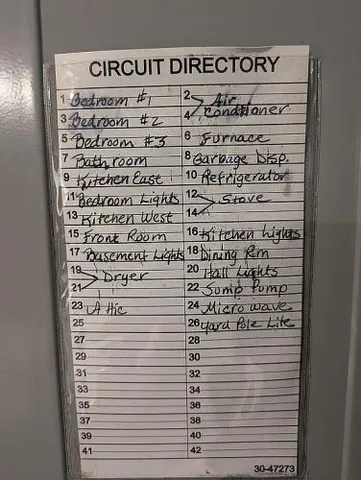 CIRCUIT DIRECTORY
1 Bedroom #1 2 > Air
3 Bedroom #2 4 Conditioner
5 Bedroom #3 6 Furnace
7 Bathroom 8 Garbage Disp.
9 Kitchen East 10 Refrigerator
11 Bedroom Lights 12 > Stove
13 Kitchen West 14
15 Front Room 16 Kitchen Lights
17 Basement Lights 18 Dining Rm
19 > Dryer 20 Hall Lights
21 22 Sump Pump
23 Attic 24 Microwave
25 26 Yard Pole Lite
27 28
29 30
31 32
33 34
35 36
37 38
39 40
41 42
30-47273